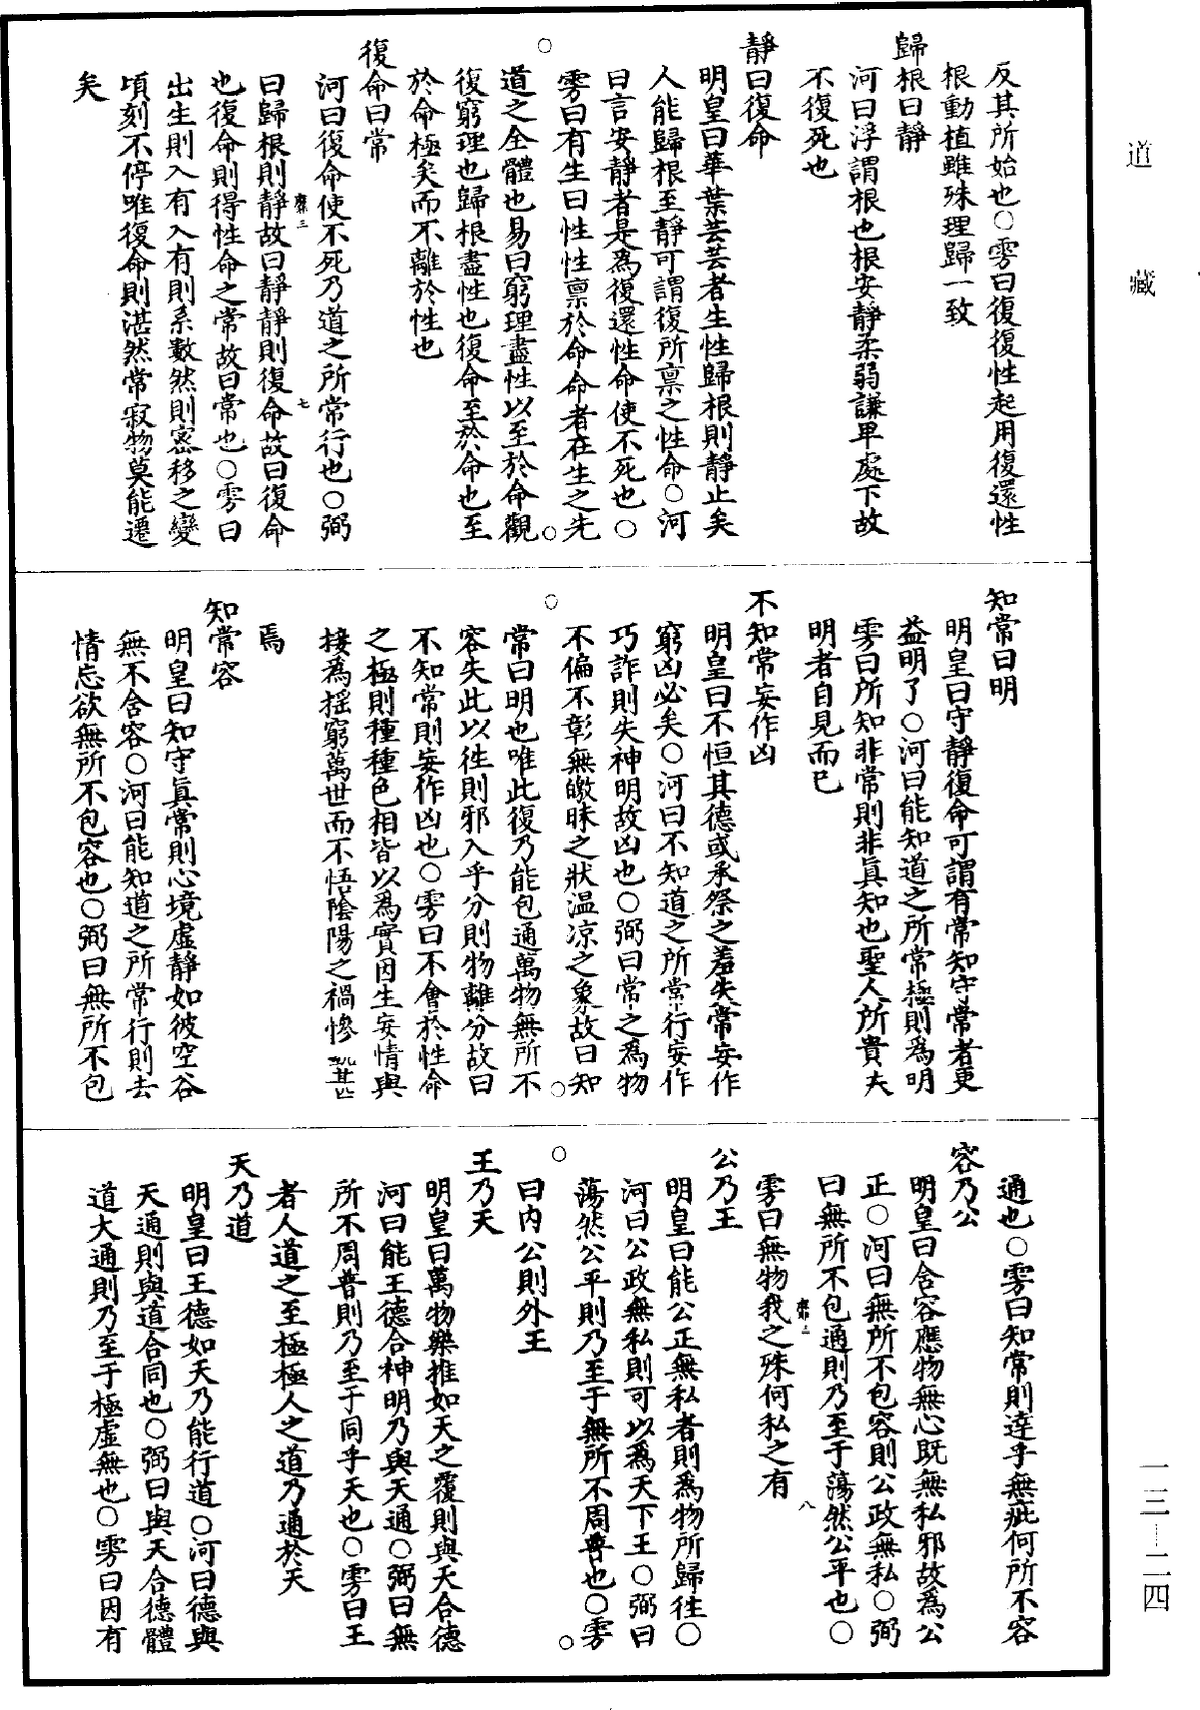 反其所始也○雱曰復復性起用復還性
根動植雖殊理歸一致
歸根曰靜
河曰浮謂根也根安靜柔弱謙卑處下故
不復死也
靜曰復命
明皇曰華葉芸芸者生性歸根則靜止矣
人能歸根至靜可謂復所禀之性命○河
曰言安靜者是爲復還性命使不死也○
雱曰有生曰性性禀於命命者在生之先
道之全體也易曰窮理盡性以至於命觀
復窮理也歸根盡性也復命至於命也至
於命極矣而不離於性也
復命曰常
河曰復命使不死乃道之所常行也○弼
曰歸根則靜故曰靜靜則復命故曰復命
也復命則得性命之常故曰常也○雱曰
出生則入有入有則系數然則密移之變
頃刻不停唯復命則湛然常寂物莫能遷
矣
知常曰明
明皇曰守靜復命可謂有常知守常者更
益明了○河曰能知道之所常極則爲明
雱曰所知非常則非眞知也聖人所貴夫
明者自見而已
不知常妄作凶
明皇曰不恒其德或承祭之羞失常妄作
窮凶必矣○河曰不知道之所常行妄作
巧詐則失神明故凶也○弼曰常之爲物
不偏不彰無皦昧之狀温凉之象故曰知
常曰明也唯此復乃能包通萬物無所不
容失此以徃則邪入乎分則物離分故曰
不知常則妄作凶也○雱曰不會於性命
之極則種種色相皆以爲實因生妄情與
接爲揺窮萬世而不悟陰陽之禍慘
焉
知常容
明皇曰知守眞常則心境虛靜如彼空谷
無不含容○河曰能知道之所常行則去
情忘欲無所不包容也○弼曰無所不包
通也○雱曰知常則達乎無疵何所不容
容乃公
明皇曰含容應物無心既無私邪故爲公
正○河曰無所不包容則公政無私○弼
曰無所不包通則乃至于蕩然公平也○
雱曰無物我之殊何私之有
公乃王
明皇曰能公正無私者則爲物所歸徃○
河曰公政無私則可以爲天下王○弼曰
蕩然公平則乃至于無所不周普也○雱
曰内公則外王
王乃天
明皇曰萬物樂推如天之覆則與天合德
河曰能王德合神明乃與天通○弼曰無
所不周普則乃至于同乎天也○雱曰王
者人道之至極極人之道乃通於天
天乃道
明皇曰王德如天乃能行道○河曰德與
天通則與道合同也○弼曰與天合德體
道大通則乃至于極虛無也○雱曰因有
道藏
一三—二四